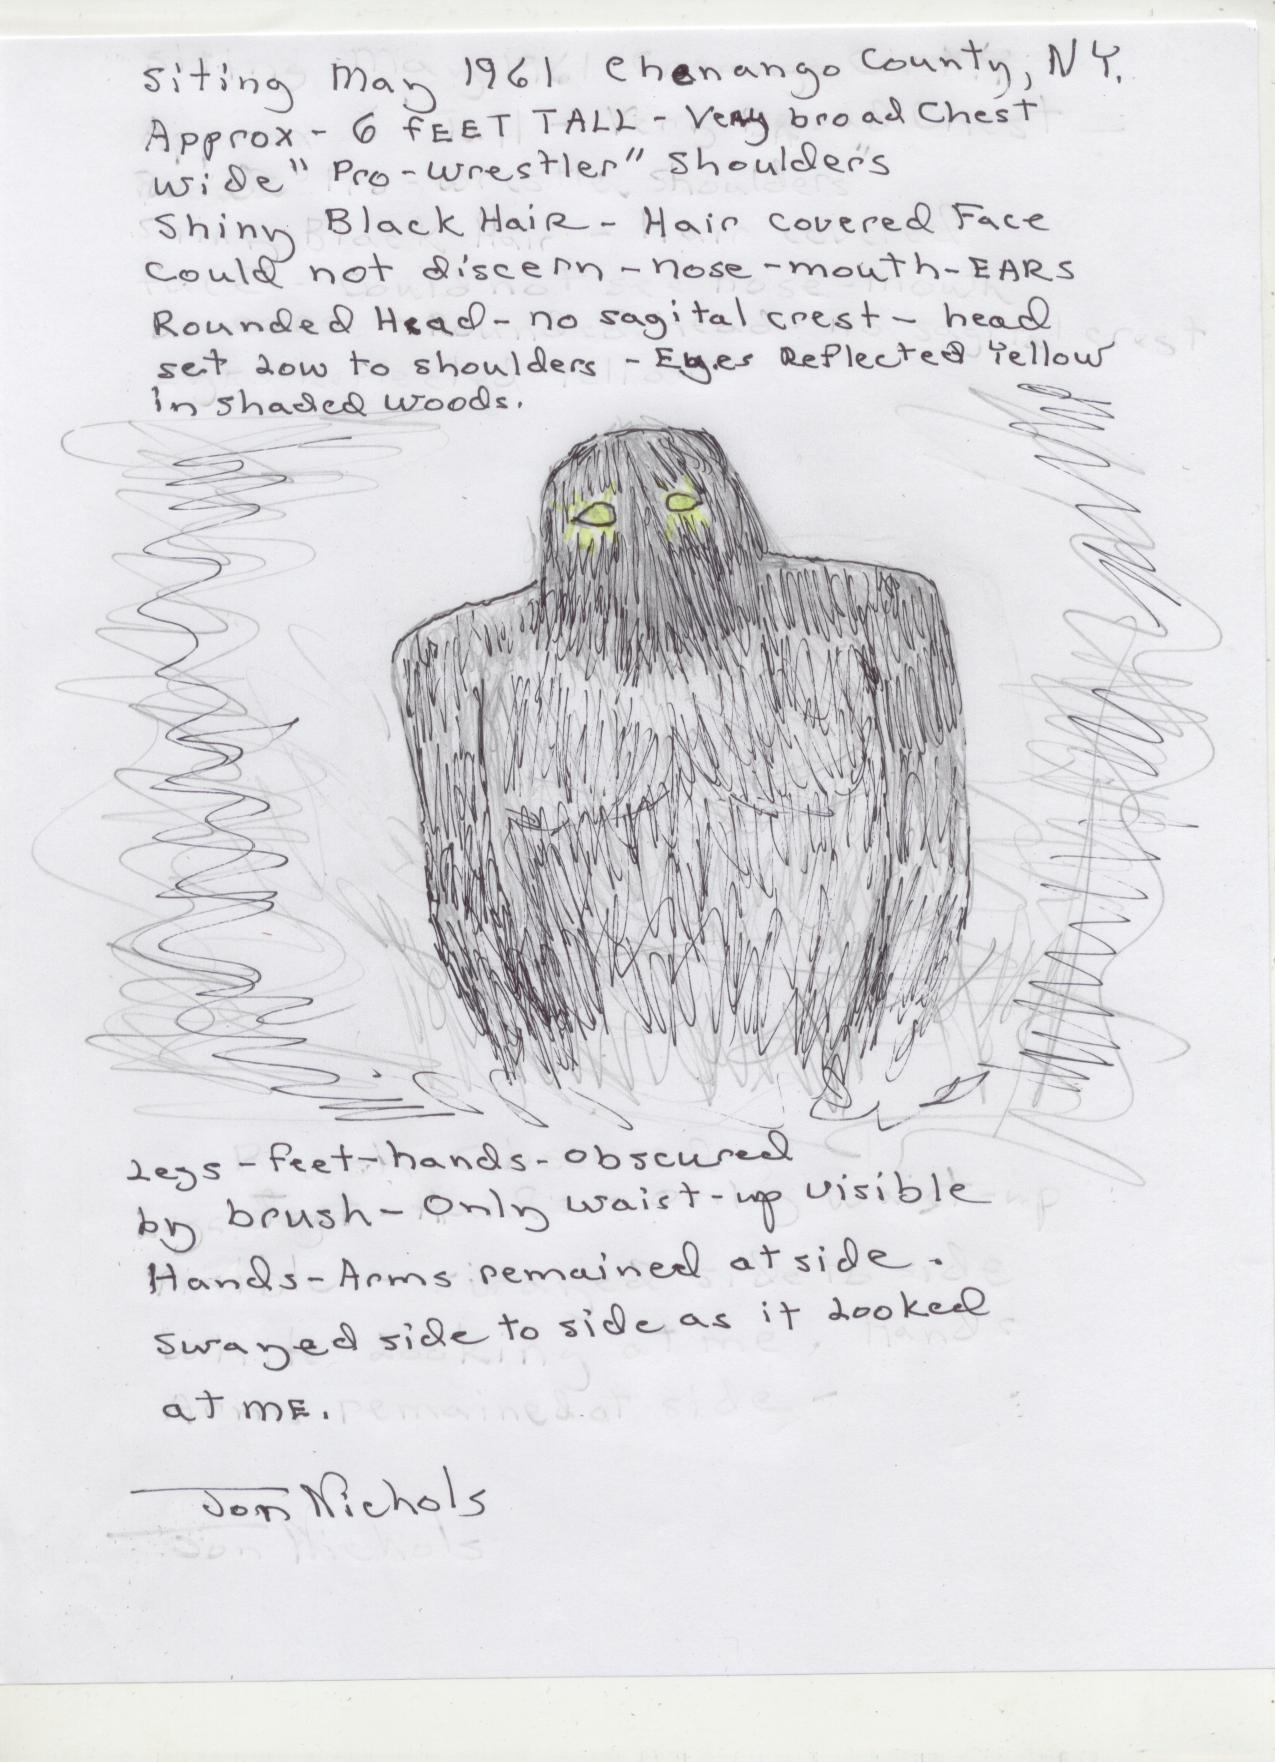 Siting May 1961 Chenango County, NY.
Approx - 6 fEET TALL - Very broad Chest
wide "Pro-wrestler" shoulders
Shiny Black HaiR - Hair covered Face
Could not discern - nose - mouth - EARS
Rounded Head - no sagital crest - head
set low to shoulders - Eyes Reflected Yellow
in shaded woods.
Legs - feet - hands - obscured
by brush - Only waist - up visible
Hands - Arms remained at side.
swayed side to side as it Looked
at mE.
Jon Nichols